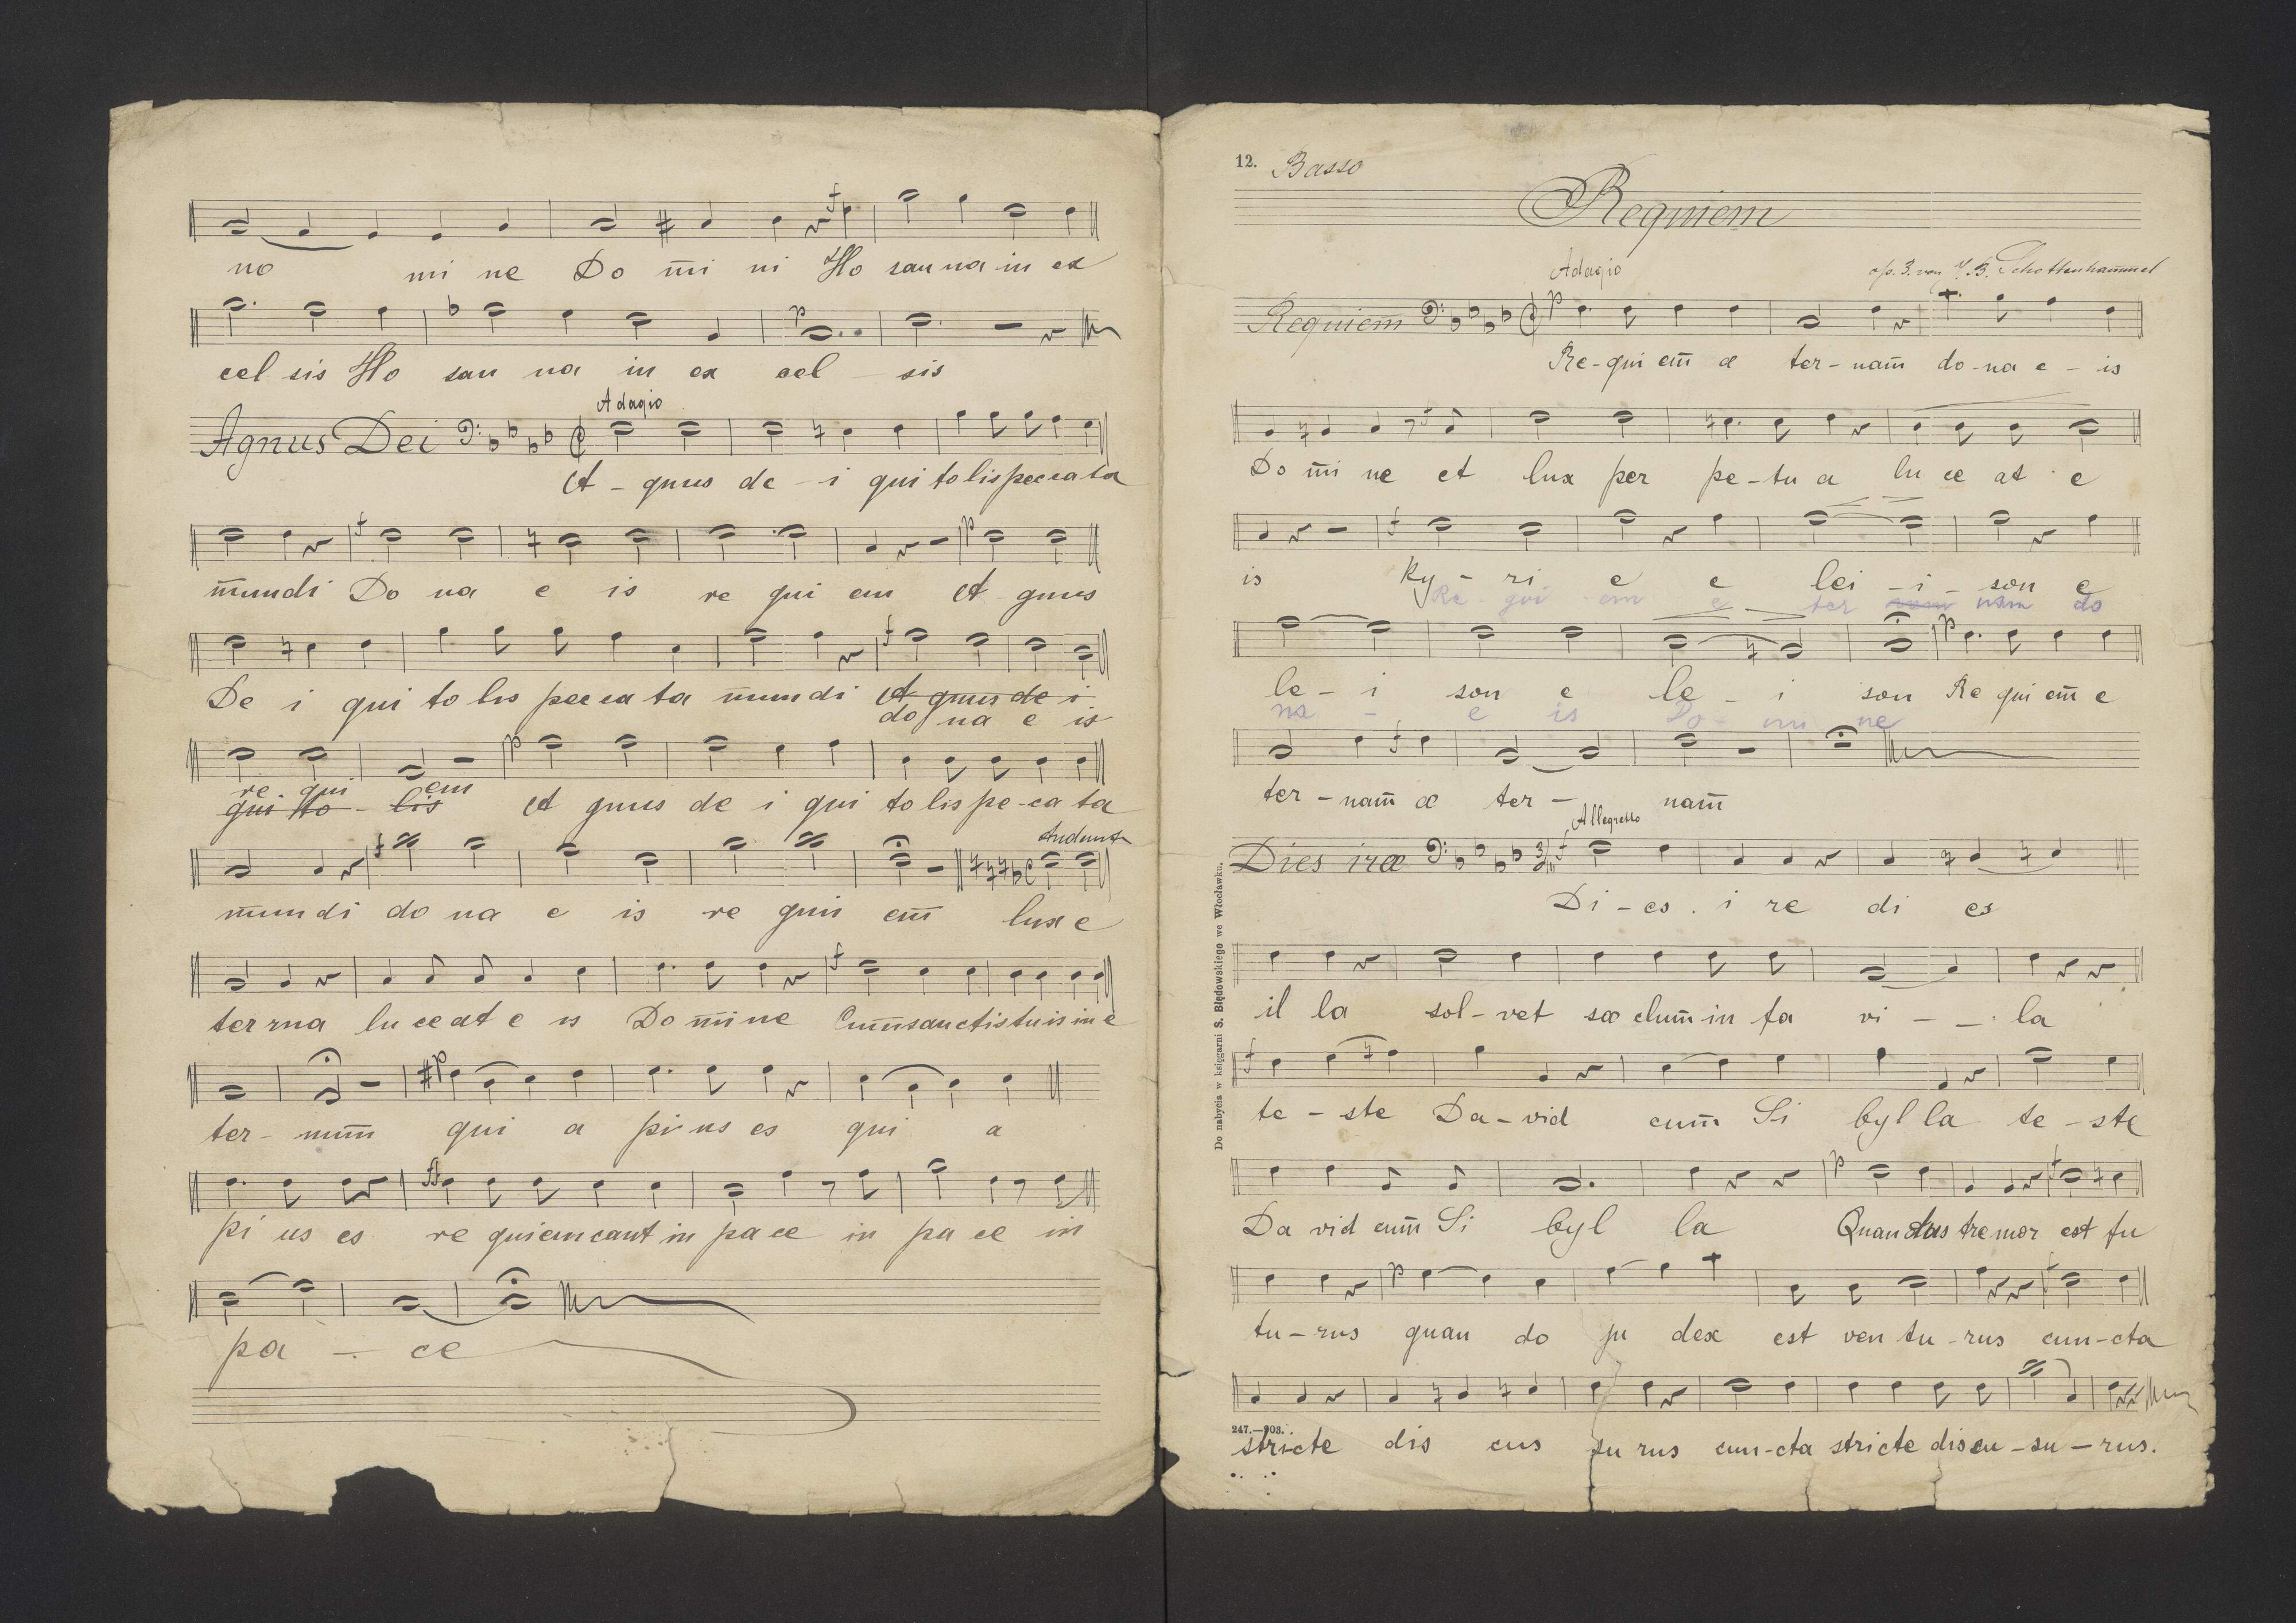 no mi ne Do m̄i ni Ho san na in ex
cel sis Ho san na in ex cel – sis
Adagio
Agnus Dei
A – gnus de – i qui to lis pec ca ta
m̄undi Do na e is re qui em A gnus
De i qui to lis pec ca ta m̄un di A gnus de i
do na e is
re qui em
qui to – lis A gnus de i qui to lis pe-ca ta
Andante
m̄un di do na e is re quie em̄ lux e
ter rna lu ce at e is Do m̄i ne Cum̄ sanctis tuis in e
ter – num̄ qui a pi us es qui a
pi us es re quiem cant in pa ce in pa ce in
pa – ce
12. Basso
Requiem
Adagio op. 3. von J. B. Schottenham̄mel
Requiem̄
Re – qui em̄ æ ter – nam̄ do – na e – is
Do m̄i ne et lux per pe – tu a lu ce at e
is Ky – ri e e lei – i – son e
Re qui em e ter nam do
le – i son e le – i son Re qui em̄ e
na – e is Do – mi ne
ter – nam̄ æ ter – nam̄
Allegretto
Dies iræ
Di – es . i re di es
il la sol – vet sæ clum̄ in fa vi – – la
te – ste Da – vid cum̄ Si byl la te – ste
Da vid cum̄ Si byl la Quan tus tre mor est fu
tu – rus quan do ju dex est ven tu – rus cun – cta
247.—903.
stricte dis cus su rus cun – cta stricte discu – su – rus.
Do nabycia w księgarni S. Błędowskiego we Włocławku.